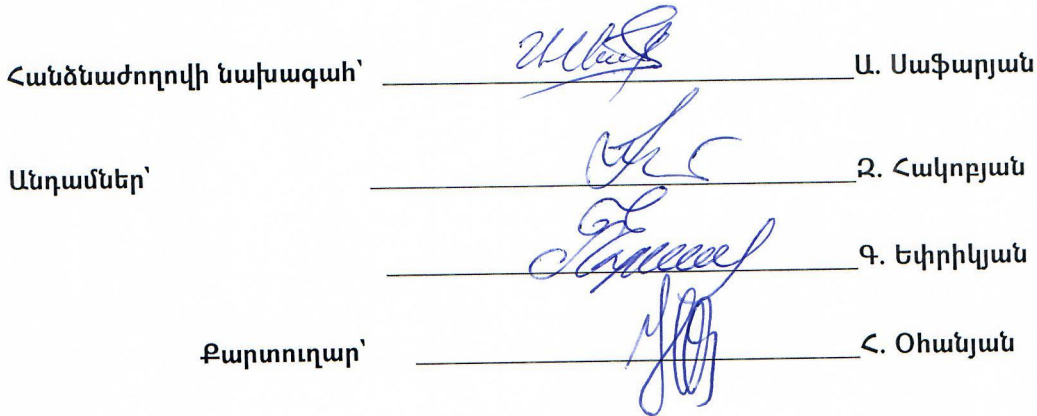 Հանձնաժողովի նախագահ՝ Ա. Սաֆարյան
Անդամներ՝ Զ. Հակոբյան
Գ. Եփրիկյան
Քարտուղար՝ Հ. Օհանյան